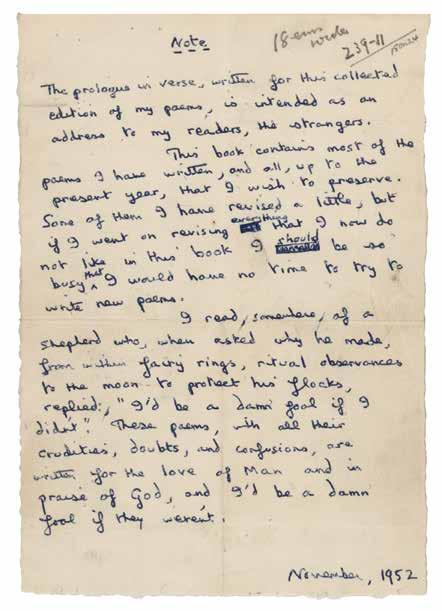 Note
18 ems
wide
239-11
The prologue in verse, written for this collected
edition of my poems, is intended as an
address to my readers, the strangers.
This book contains most of the
poems I have written, and all, up to the
present year, that I wish to preserve.
Some of them I have revised a little, but
if I went on revising everything that I now do
not like in this book I should be so
busy that I would have no time to try to
write new poems.
I read, somewhere, of a
shepherd who, when asked why he made,
from within fairy rings, ritual observances
to the moon to protect his flocks,
replied, "I'd be a damn' fool if I
didn't". These poems, with all their
crudities, doubts, and confusions, are
written for the love of Man and in
praise of God, and I'd be a damn'
fool if they weren't.
November, 1952